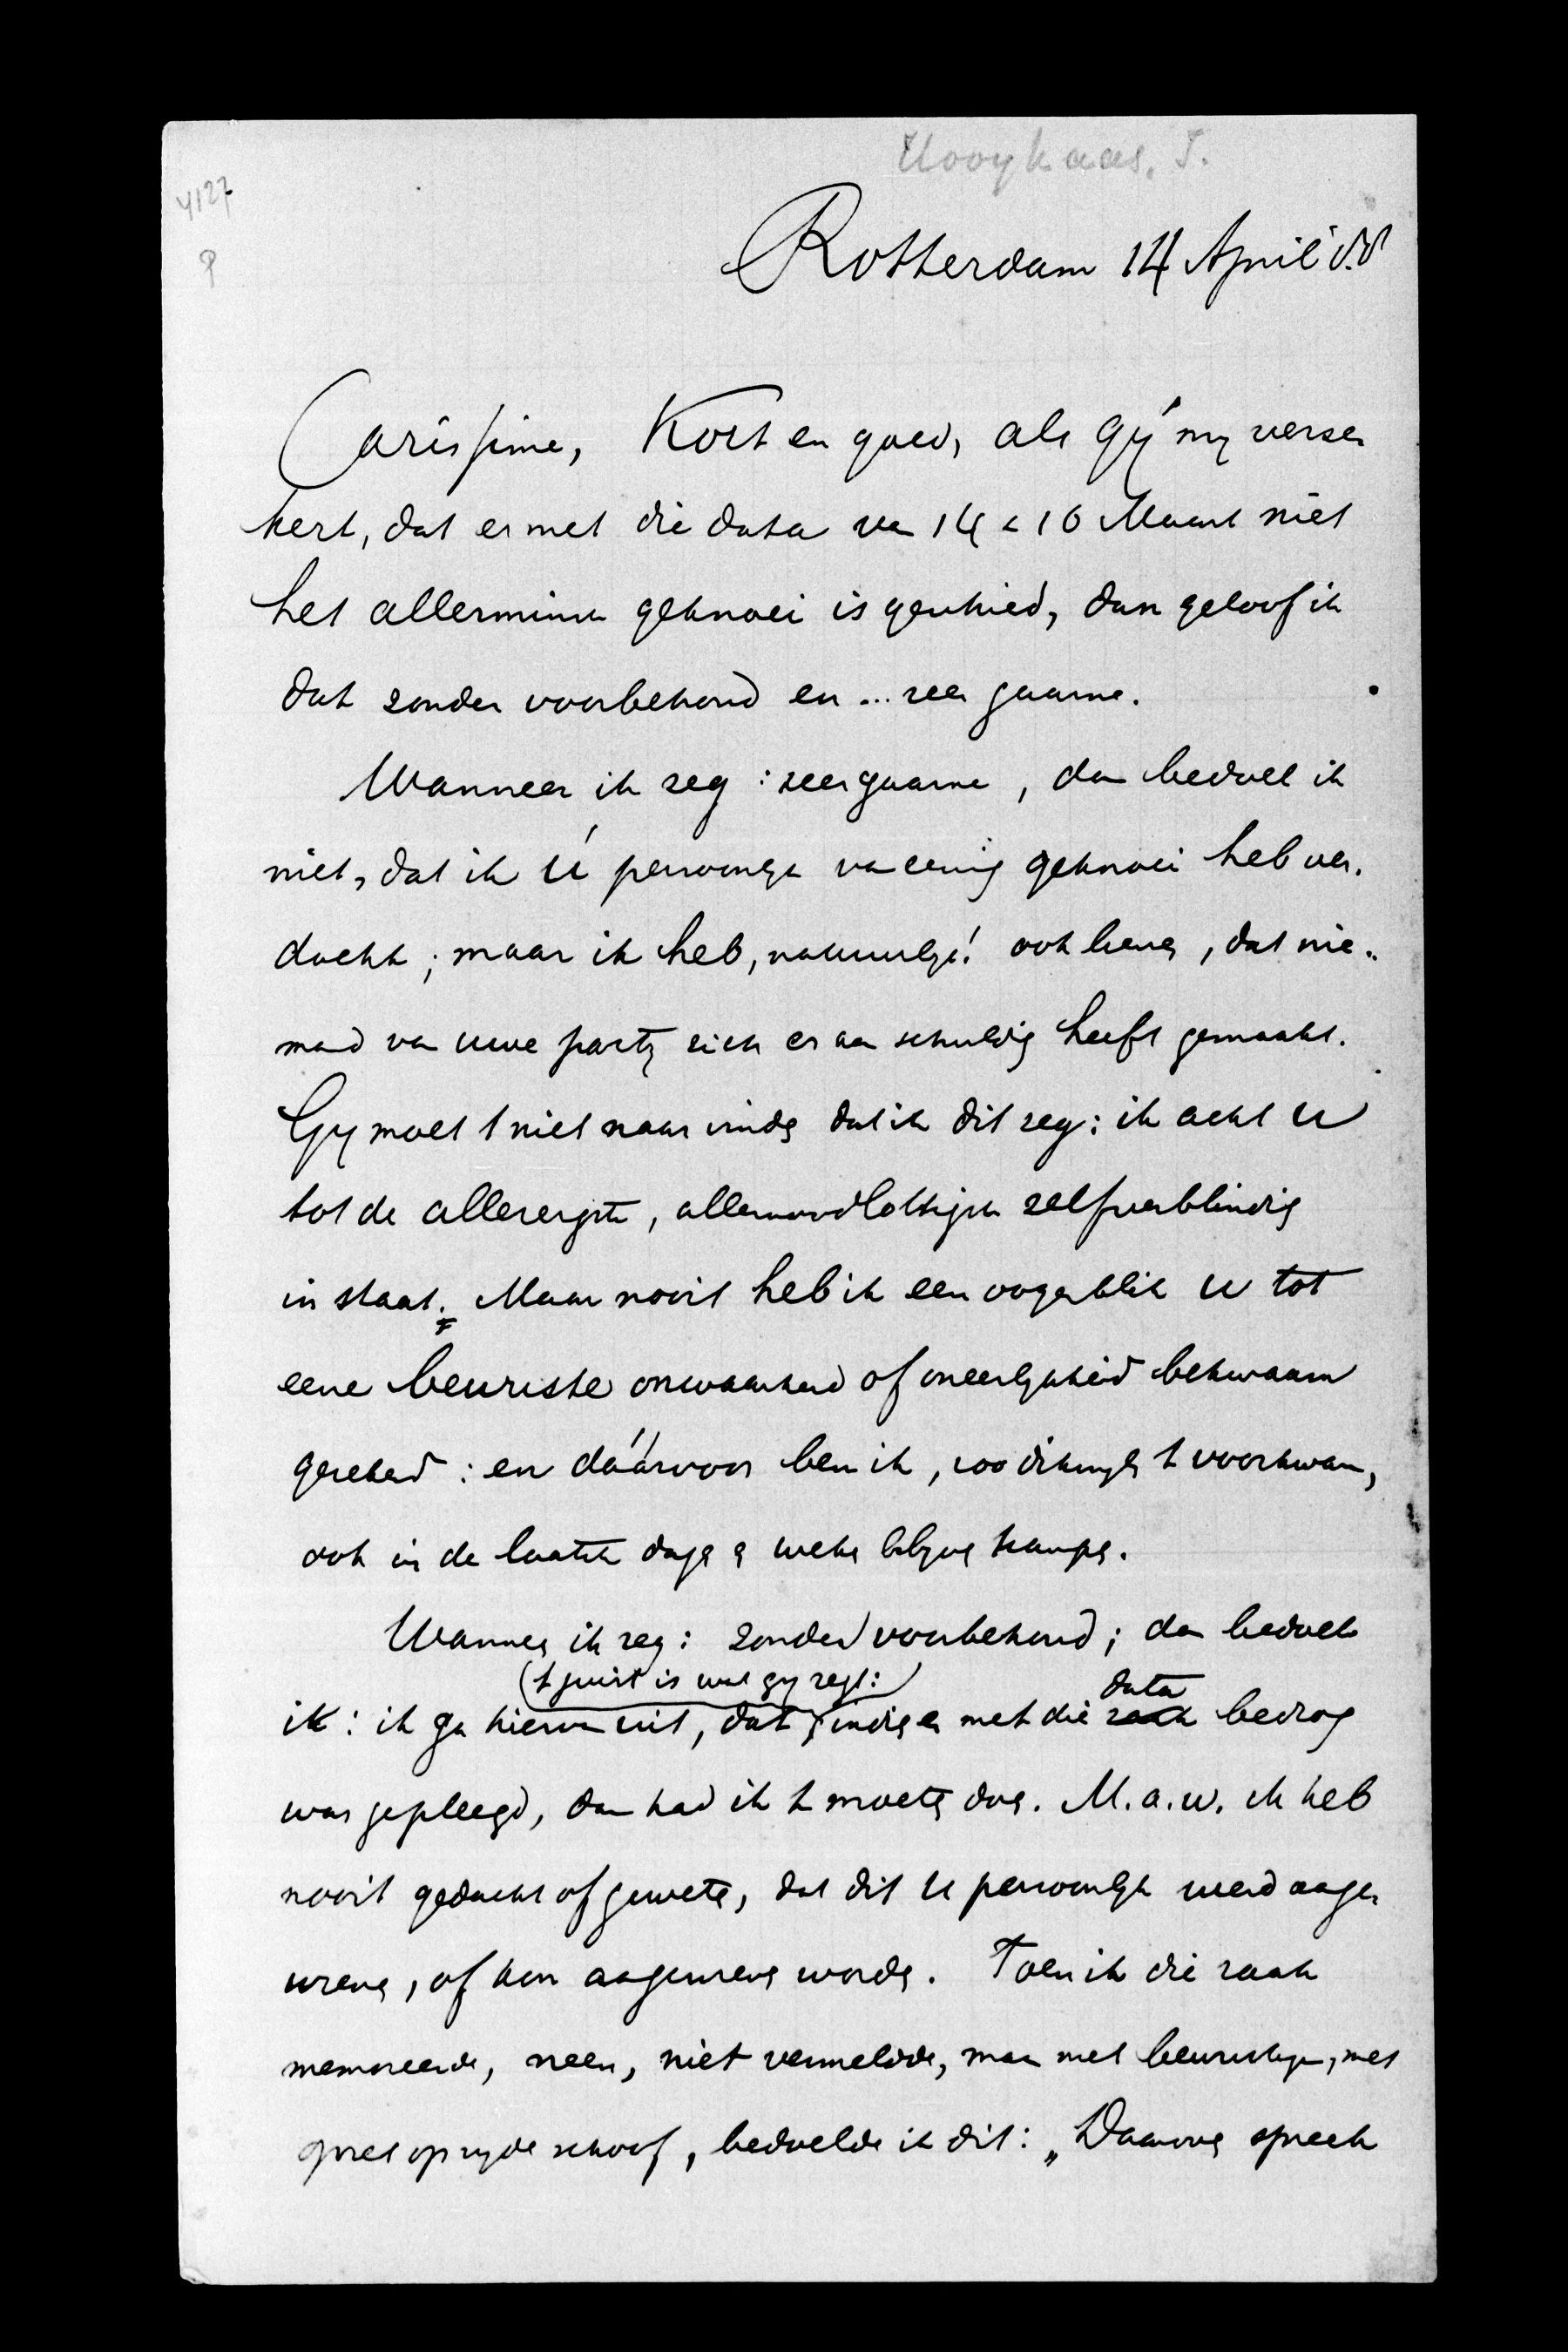 Hooykaas, J.
4127
Rotterdam 14 April 88
Carissime, Kort en goed, als gij mij verze
kert, dat er met die data van 14 & 16 Maart niet
het allerminste geknoei is geschied, dan geloof ik
dat zonder voorbehoud en ... zeer gaarne.
Wanneer ik zeg : zeer gaarne, dan bedoel ik
niet, dat ik Ú persoonlijk van eenig geknoei heb ver-
dacht ; maar ik heb, natuurlijk! ook liever, dat nie-
mand van uwe partij zich er aan schuldig heeft gemaakt.
Gij moet 't niet naar vinden dat ik dit zeg : ik acht U
tot de allerergste, allernoodlottigste zelfverblinding
in staat. Maar nooit heb ik een oogenblik U tot
eene bewuste onwaarheid of oneerlijkheid bekwaam
gerekend : en dáárvoor ben ik, zoo dikwijls 't voorkwam,
ook in de laatste dagen en weken blijven kampen.
Wanneer ik zeg : zonder voorbehoud ; dan bedoel
('t juist is wat gij zegt:)
data
ik : ik ga hiervan uit, dat, indien er met die zaak bedrog
was gepleegd, dan had ik 't moeten doen. M.a.w. ik heb
nooit gedacht of geweten, dat dit U persoonlijk werd aange
wreven, of kon aangewreven worden. Toen ik die zaak
memoreerde, neen, niet vermeldde, maar met , met
op zijde schoof, bedoelde ik dit : „Daarover spreek